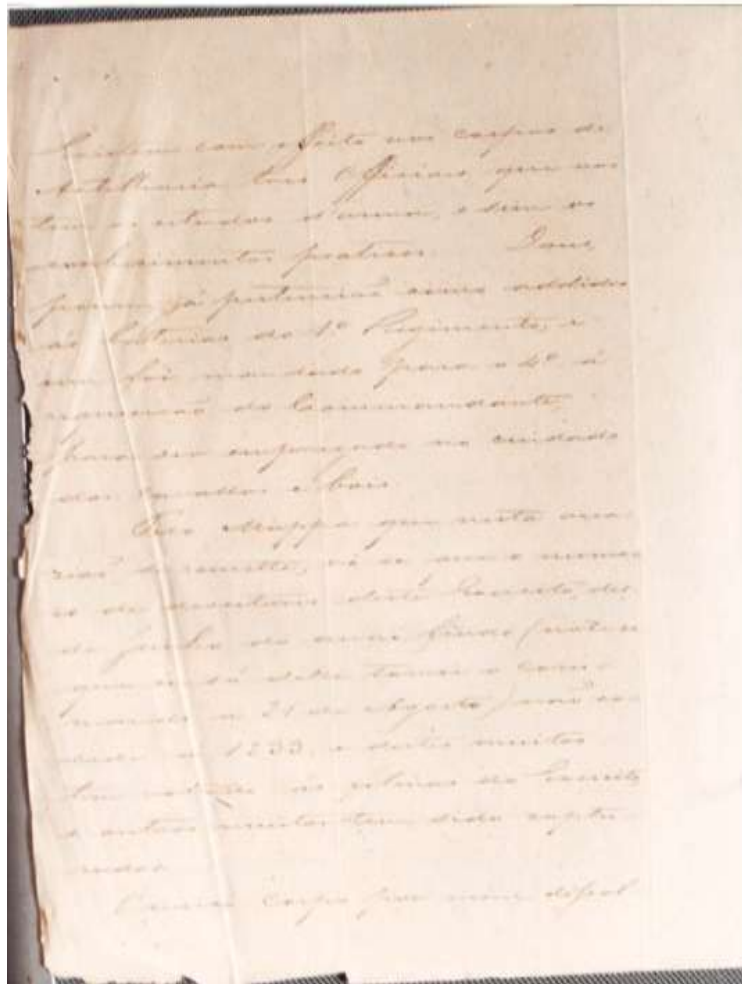 com effeito nos corpos de
Artilheria tres Officiaes, que nos
tem os estudos d'arma, e sim os
conhecimentos praticos. Dous,
porem, já pertencião como addidos
ás baterias do 1º Regimento, e
um foi mandado para o 4º á
do Commandante,
para ser empregado no cuidado
dos cavallos e bois.
Pelo Mappa que nesta occa-
zião remetto, vê se que o nume-
ro de desertores deste Exercito, des-
de Junho do anno findo (note-se
que eu só delle tomei o com-
mando a 21 de Agosto) não ex-
cede a 1233, e destes muitos
tem voltado ás fileiras do Exercito
e outros muitos tem sido captu-
rados.
corpo